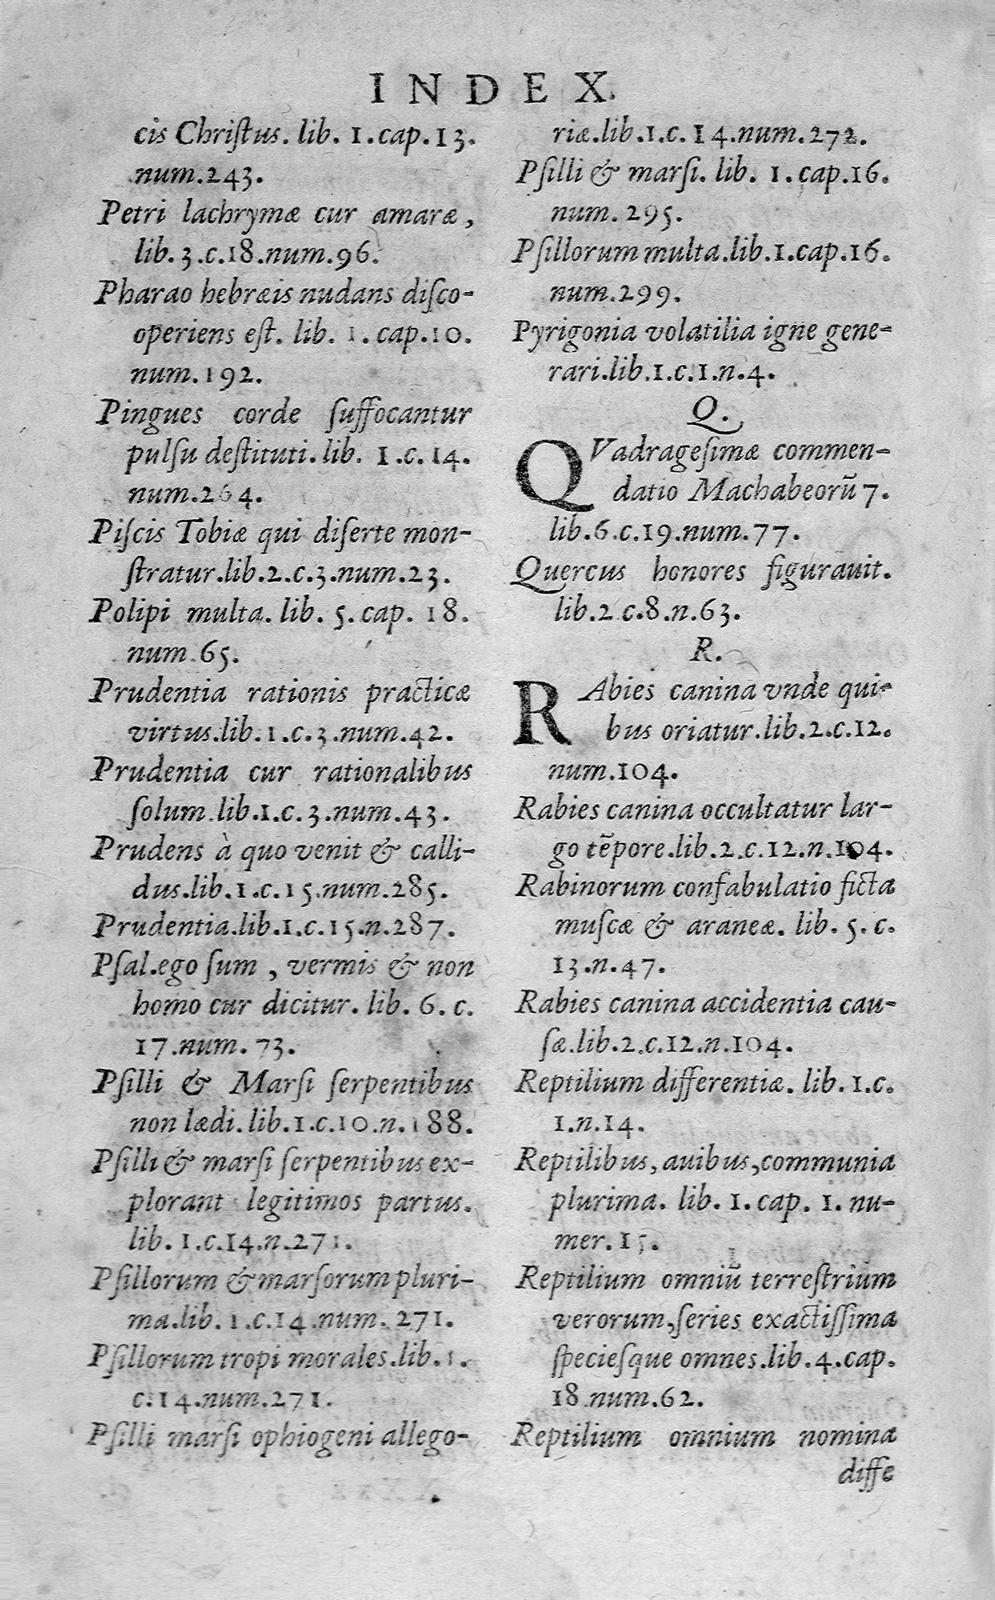 INDEX.
cis Chriſtus. lib. 1.cap.13.
num.243.
Petri lachrymæ cur amaræ,
lib. 3.c.18.num.96.
Pharao hebræis nudans diſco-
operiens eſt. lib. 1.cap.10.
num.192.
Pingues corde ſuffocantur
pulſu deſtituti.lib. 1.c.14.
num.264.
Piſcis Tobiæ qui diſerte mon-
ſtratur.lib.2.c.3.num.23.
Polipi multa. lib. 5. cap. 18.
num.65.
Prudentia rationis practicæ
virtus.lib.1.c.3.num.42.
Prudentia cur rationalibus
ſolum.lib.1.c.3.num.43.
Prudens à quo venit & calli-
dus.lib.1.c.15.num.285.
Prudentia.lib.1.c.15.n.287.
Pſal.ego ſum, vermis & non
homo cur dicitur. lib. 6. c.
17.num. 73.
Pſilli & Marſi ſerpentibus
non lædi.lib.1.c.10.n.188.
Pſilli & marſi ſerpentibus ex-
plorant legitimos partus.
lib. 1.c.14.n.271.
Pſillorum & marſorum pluri-
ma.lib. 1.c.14.num. 271.
Pſillorum tropi morales.lib.1.
c.14.num.271.
Pſilli marſi ophiogeni allego-
riæ.lib.1.c.14.num.272.
Pſilli & marſi. lib. 1.cap.16.
num. 295.
Pſillorum multa.lib.1.cap.16.
num.299.
Pyrigonia volatilia igne gene-
rari.lib.1.c.1.n.4.
Q.
QVadrageſimæ commen-
datio Machabeorũ 7.
lib.6.c.19.num.77.
Quercus honores figurauit.
lib.2.c.8.n.63.
R.
RAbies canina vnde qui-
bus oriatur.lib.2.c.12.
num.104.
Rabies canina occultatur lar-
go tẽpore.lib.2.c.12.n.104.
Rabinorum confabulatio ficta
muſcæ & araneæ. lib. 5. c.
13.n.47.
Rabies canina accidentia cau-
ſæ.lib.2.c.12.n.104.
Reptilium differentiæ. lib. 1.c.
1.n.14.
Reptilibus, auibus,communia
plurima. lib. 1. cap. 1. nu-
mer.15.
Reptilium omniũ terreſtrium
verorum,ſeries exactiſſima
ſpecieſque omnes.lib.4.cap.
18.num.62.
Reptilium omnium nomina
diffe